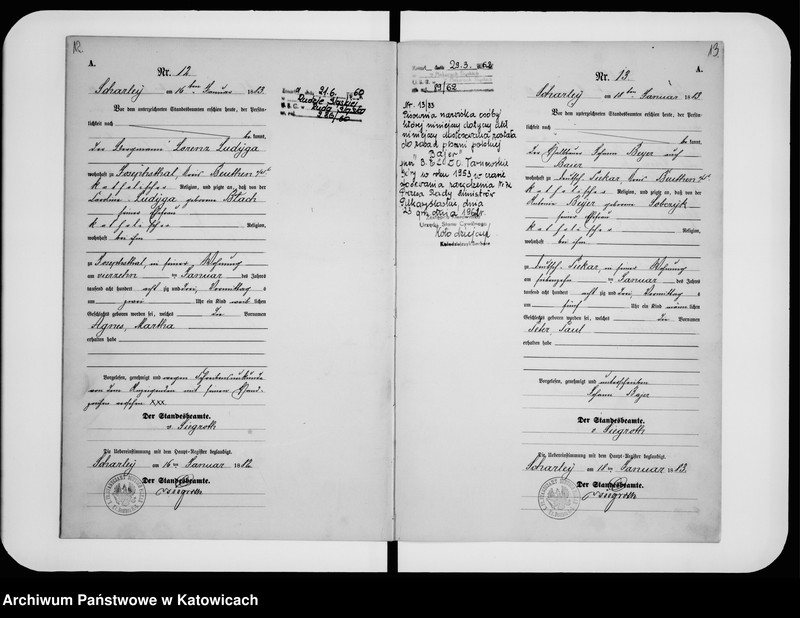 12
A.
Nr. 12
Scharley am 16ten Januar 1883.
Vor dem unterzeichneten Standesbeamten erschien heute, der Persön-
lichkeit nach
be kannt,
der Bergmann Lorenz Ludyga
wohnhaft zu Josephsthal, Kreis Beuthen
katholischer Religion, und zeigte an, daß von der
Ludyga geborene Blach
seiner Ehefrau
katholischer Religion,
wohnhaft bei ihm
zu Josephsthal, in seiner Wohnung
am vierzehn ten Januar des Jahres
tausend acht hundert achtzig und drei, Vormittag s
um zwei Uhr ein Kind weib lichen
Geschlechts geboren worden sei, welches die Vornamen
Agnes, Martha
erhalten habe
Vorgelesen, genehmigt und wegen Schreibensunkunde
von dem Anzeigenden mit seinem Hand-
zeichen versehen XXX
Der Standesbeamte.
v. Siegroth
Die Uebereinstimmung mit dem Haupt-Register beglaubigt.
Scharley am 16ten Januar 188
Der Standesbeamte.
v. Siegroth
21.6. 1960
Rudzie Śląskiej
Ruda Śląska
286/60
29.3. 1962
19/62
Nr. 13/83
Pisownia nazwiska osoby
której niniejszy dotyczy akt
niniejszy dostosowana została
do zasad pisowni polskiej
"Bajer"
Góry w roku 1953 w czasie
Prezesa Rady Ministrów
dnia
23 grudnia 1961r.
Urzędu Stanu Cywilnego
13
A.
Nr. 13
Scharley am 11ten Januar 1883.
Vor dem unterzeichneten Standesbeamten erschien heute, der Persön-
lichkeit nach
be kannt,
der Johann Beyer auch
Baier
wohnhaft zu Deutsch Piekar, Kreis Beuthen
katholischer Religion, und zeigte an, daß von der
Antonie Beyer geborene Sobczyk
seiner Ehefrau
katholischer Religion,
wohnhaft bei ihm
zu Deutsch Piekar, in seiner Wohnung
am ten Januar des Jahres
tausend acht hundert achtzig und drei, Vormittag s
um fünf Uhr ein Kind männ lichen
Geschlechts geboren worden sei, welches die Vornamen
Peter, Paul
erhalten habe
Vorgelesen, genehmigt und unterschrieben
Johann Bajer
Der Standesbeamte.
v. Siegroth
Die Uebereinstimmung mit dem Haupt-Register beglaubigt.
Scharley am 11ten Januar 1883.
Der Standesbeamte.
v. Siegroth
Archiwum Państwowe w Katowicach